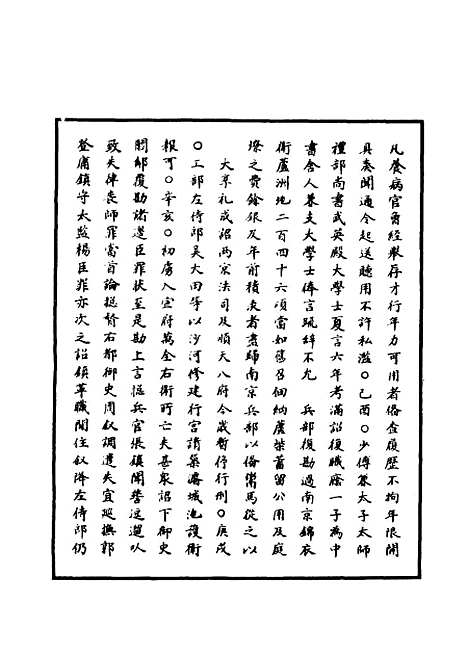 凡養病官員經舉存才行年力可用者備查履歷不拘年限開
具奏聞通令起送聽用不許私濫○己酉○少傅兼太子太師
禮部尚書武英殿大學士夏言六年考滿詔復職廕一子為中
書舍人兼支大學士俸言疏辭不允　兵部復勘過南京錦衣
衛蘆洲地二百四十六頃當如舊召佃納蘆柴蓄留公用及庭
燎之費餘銀及年前積朱者盡歸南京兵部以備彎馬從之以
大享禮成詔兩京法司及順天八府今歲暫停行刑○庚戌
○工部左侍郎吳大田等以沙河修建行宮請築濠城池護衛
報可○辛亥○初虜入宣府萬全右衛所亡失甚衆詔下御史
閻鄰覆勘諸邊臣罪狀至是勘上言總兵官張鎮聞警逗遛以
致失律喪師罪當首論總督右都御史周叙調遣失宜巡撫郭
登庸鎮守太監楊臣罪亦次之詔鎮革職閒住叙降左侍郎仍